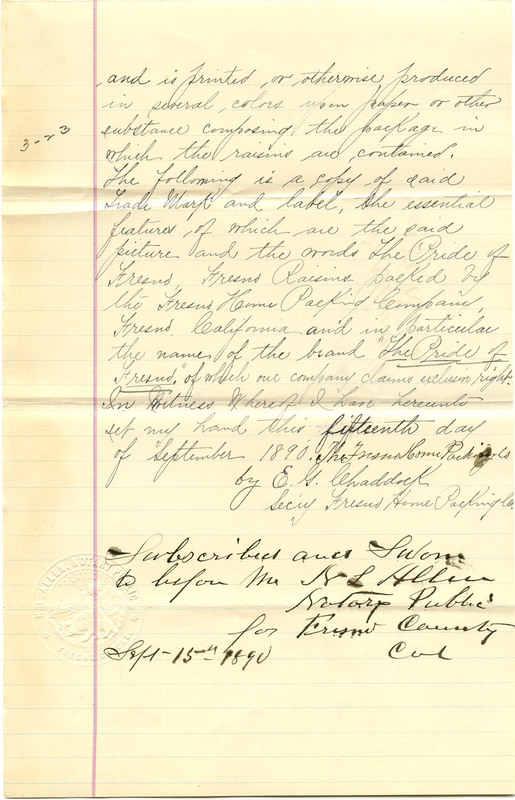 and is printed, or otherwise produced
in several colors upon paper or other
3-23
substance composing the package in
which the raisins are contained.
The following is a copy of said
Trade Mark and label, the essential
features of which are the said
picture and the words The Pride of
Fresno, Fresno Raisins packed by
the Fresno Home Packing Company,
Fresno, California and in particular
the name of the brand "The Pride of
Fresno," of which our company claims exclusive right.
In Witness Whereof I have hereunto
set my hand this fifteenth day
of September 1890. The Fresno Home Packing Co
by E. G. Chaddock
Sec'y Fresno Home Packing Co.
Subscribed and Sworn
to before me N L Allen
Notary Public
for Fresno County
Sept 15th 1890 Cal